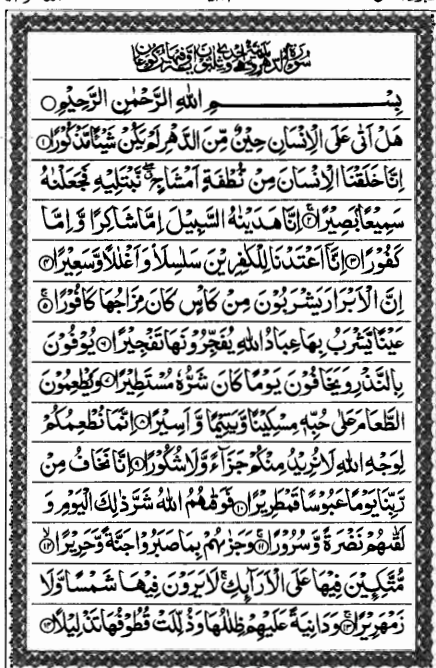 بِسْمِ اللهِ الرَّحْمٰنِ الرَّحِيْمِ
هَلْ اَتٰى عَلَى الْاِنْسَانِ حِيْنٌ مِّنَ الدَّهْرِ لَمْ يَكُنْ شَيْئًا مَّذْكُوْرًا ۝۱
اِنَّا خَلَقْنَا الْاِنْسَانَ مِنْ نُّطْفَةٍ اَمْشَاجٍ ۖ نَّبْتَلِيْهِ فَجَعَلْنٰهُ
سَمِيْعًۢا بَصِيْرًا ۝۲ اِنَّا هَدَيْنٰهُ السَّبِيْلَ اِمَّا شَاكِرًا وَّ اِمَّا
كَفُوْرًا ۝۳ اِنَّاۤ اَعْتَدْنَا لِلْكٰفِرِيْنَ سَلٰسِلَا۟ وَ اَغْلٰلًا وَّ سَعِيْرًا ۝۴
اِنَّ الْاَبْرَارَ يَشْرَبُوْنَ مِنْ كَاْسٍ كَانَ مِزَاجُهَا كَافُوْرًا ۝۵
عَيْنًا يَّشْرَبُ بِهَا عِبَادُ اللهِ يُفَجِّرُوْنَهَا تَفْجِيْرًا ۝۶ يُوْفُوْنَ
بِالنَّذْرِ وَ يَخَافُوْنَ يَوْمًا كَانَ شَرُّهٗ مُسْتَطِيْرًا ۝۷ وَ يُطْعِمُوْنَ
الطَّعَامَ عَلٰى حُبِّهٖ مِسْكِيْنًا وَّ يَتِيْمًا وَّ اَسِيْرًا ۝۸ اِنَّمَا نُطْعِمُكُمْ
لِوَجْهِ اللهِ لَا نُرِيْدُ مِنْكُمْ جَزَآءً وَّ لَا شُكُوْرًا ۝۹ اِنَّا نَخَافُ مِنْ
رَّبِّنَا يَوْمًا عَبُوْسًا قَمْطَرِيْرًا ۝۱۰ فَوَقٰىهُمُ اللهُ شَرَّ ذٰلِكَ الْيَوْمِ وَ
لَقّٰىهُمْ نَضْرَةً وَّ سُرُوْرًا ۝۱۱ وَ جَزٰىهُمْ بِمَا صَبَرُوْا جَنَّةً وَّ حَرِيْرًا ۝۱۲
مُّتَّكِـِٕيْنَ فِيْهَا عَلَى الْاَرَآىِٕكِ ۚ لَا يَرَوْنَ فِيْهَا شَمْسًا وَّ لَا
زَمْهَرِيْرًا ۝۱۳ وَ دَانِيَةً عَلَيْهِمْ ظِلٰلُهَا وَ ذُلِّلَتْ قُطُوْفُهَا تَذْلِيْلًا ۝۱۴